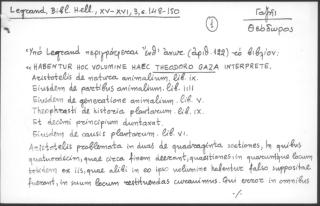 Legrand, Bibl. Hell., XV-XVI, 3, σ. 148-150
1
Γαζῆς
Θεόδωρος
Ὑπό Legrand περιγράφεται ἀριθ. 122) τό βιβλίον:
« HABENTUR HOC VOLUMINE HAEC THEODORO GAZA INTERPRETE.
Aristotelis de natura animalium. lib. ix.
Eiusdem de partibus animalium. lib. iiii
Eiusdem de generatione animalium. lib. v.
Theophrasti de historia plantarum. lib. ix.
Et decimi principium duntaxat.
Eiusdem de causis plantarum. lib. vi.
Aristotelis problemata in duas de quadraginta sectiones, in quibus
quatuordecim, quae circa finem deerant, quaestiones in quarumque locum
totidem ex iis, quae alibi in eo ipso volumine habentur falso supposital
fuerant, in suum locum restituendas curavimus. Qui error in omnibus
-/.